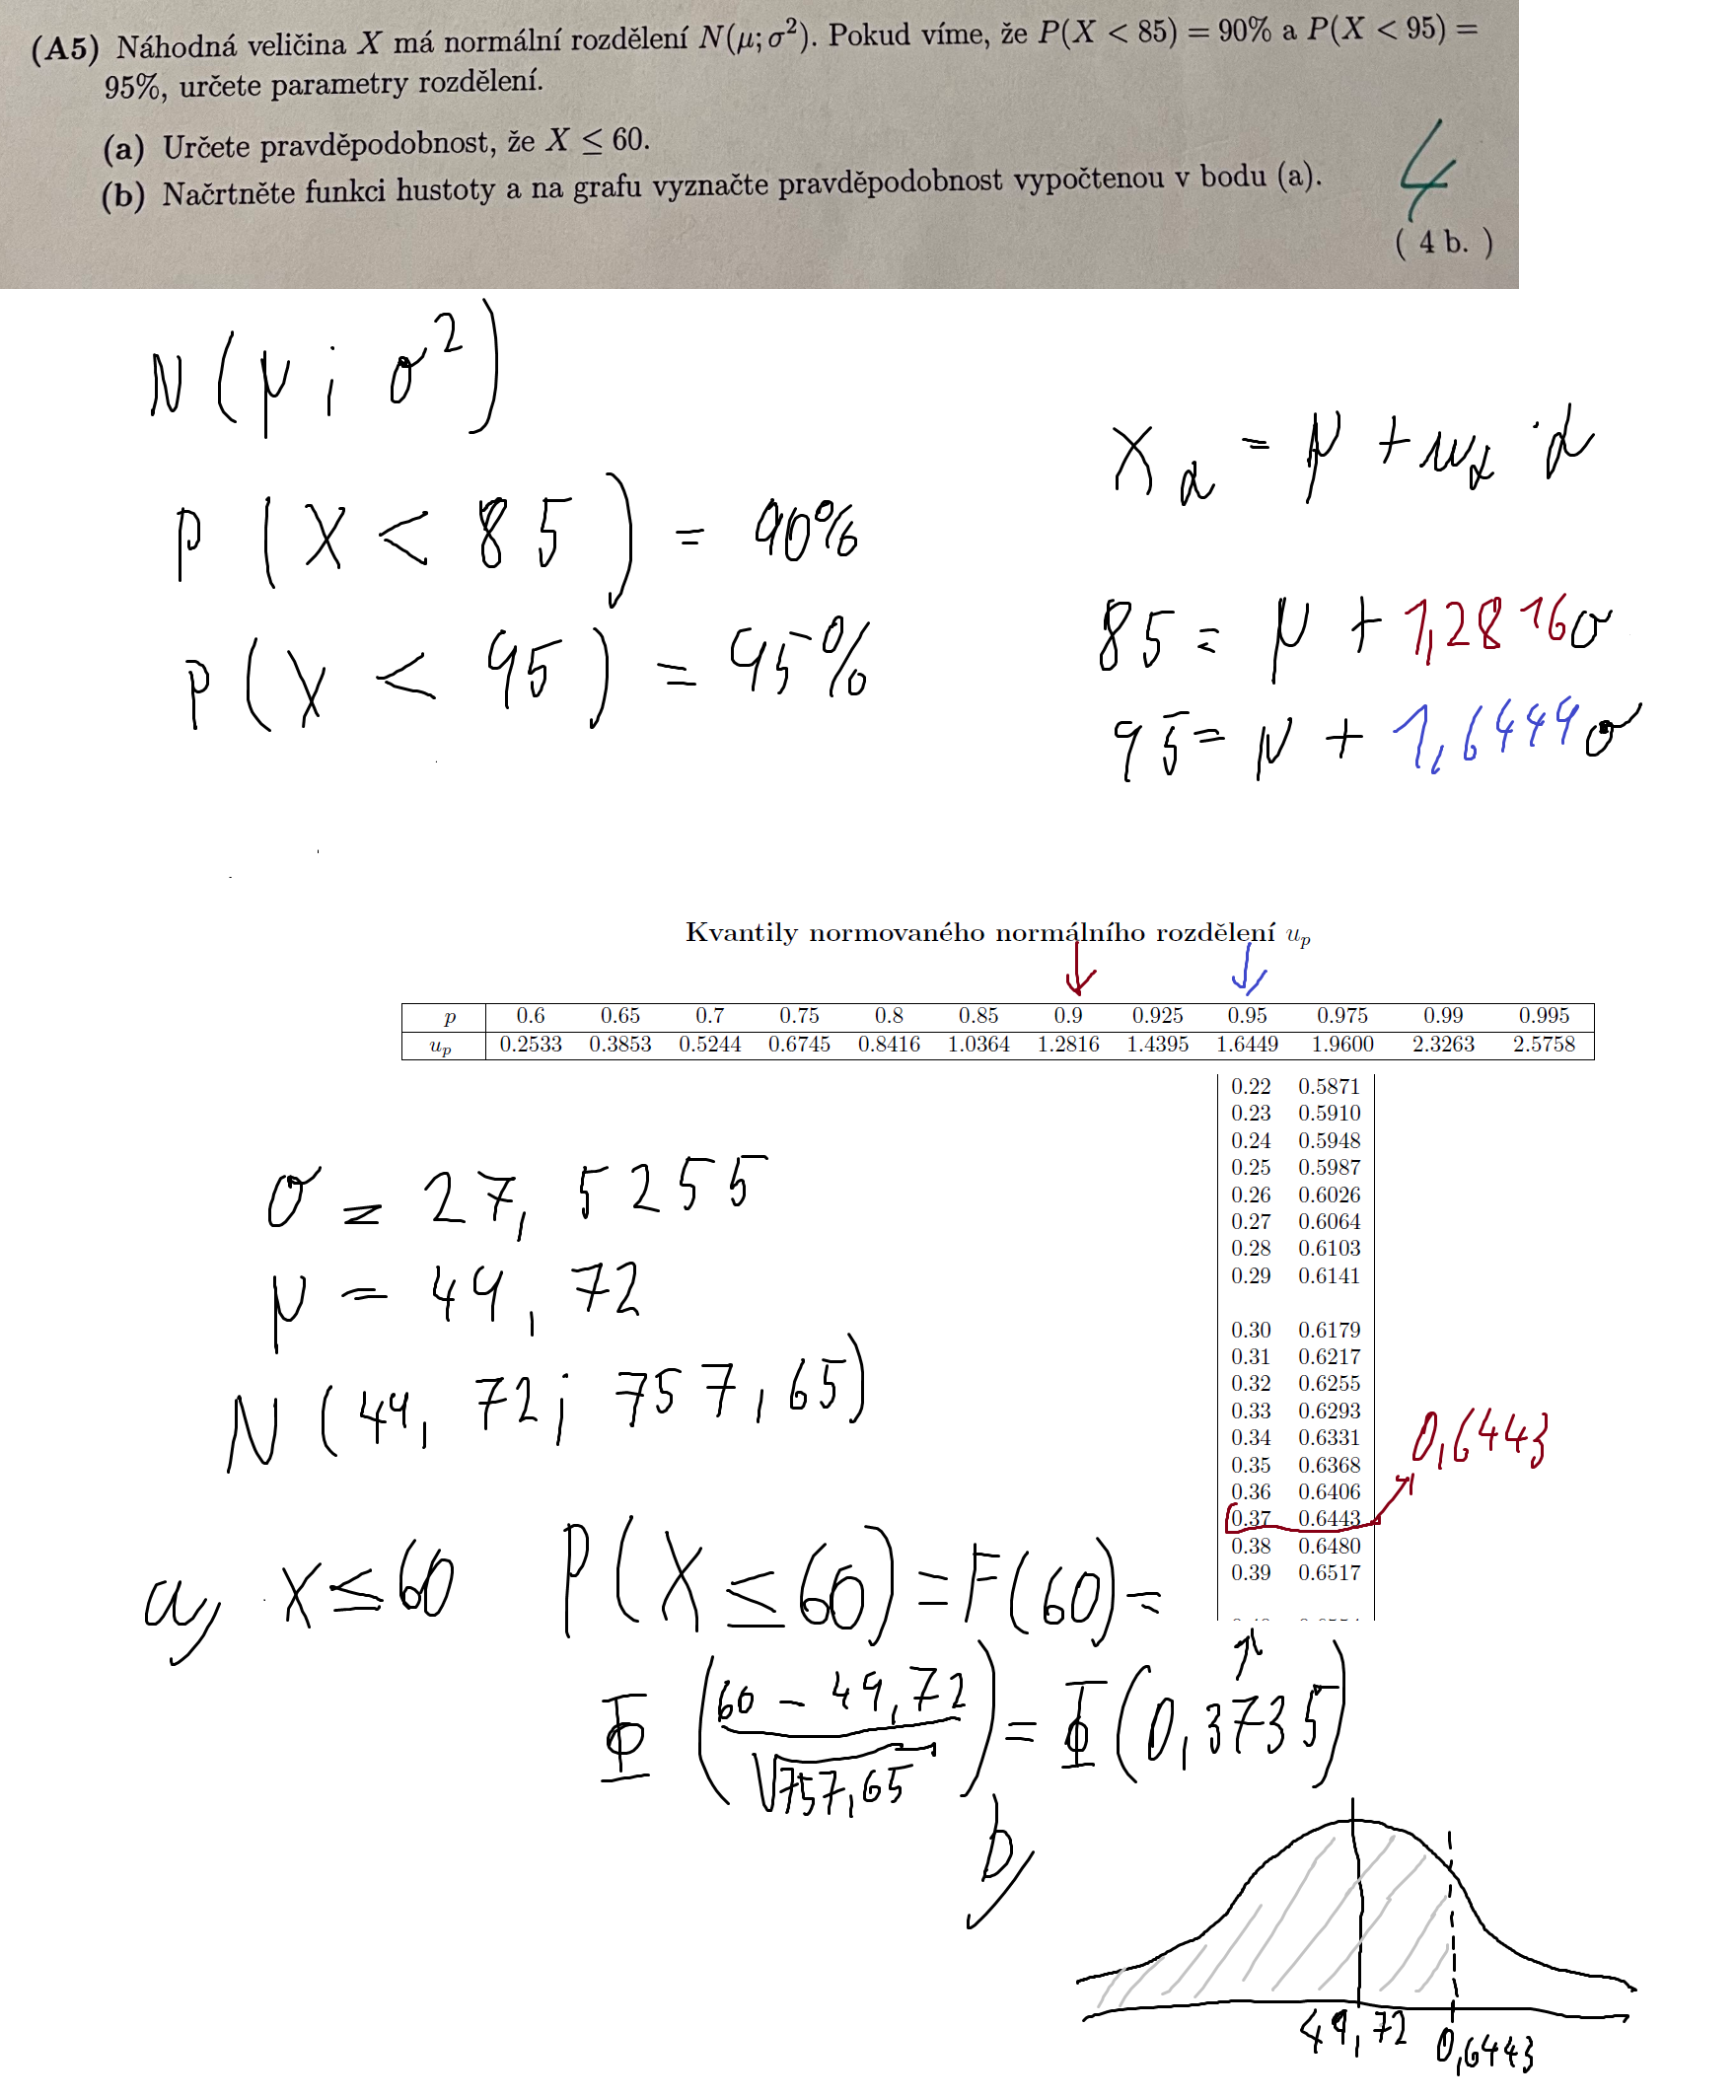 (A5) Náhodná veličina X má normální rozdělení N(μ; σ²). Pokud víme, že P(X < 85) = 90% a P(X < 95) =
95%, určete parametry rozdělení.
(a) Určete pravděpodobnost, že X ≤ 60.
(b) Načrtněte funkci hustoty a na grafu vyznačte pravděpodobnost vypočtenou v bodu (a).
4
( 4 b. )
N(μ; σ²)
x_α = μ + u_α · α
P(X < 85) = 90%
P(X < 95) = 95%
85 = μ + 1,2816σ
95 = μ + 1,6449σ
Kvantily normovaného normálního rozdělení u_p
p 0.6 0.65 0.7 0.75 0.8 0.85 0.9 0.925 0.95 0.975 0.99 0.995
u_p 0.2533 0.3853 0.5244 0.6745 0.8416 1.0364 1.2816 1.4395 1.6449 1.9600 2.3263 2.5758
0.22 0.5871
0.23 0.5910
0.24 0.5948
0.25 0.5987
0.26 0.6026
0.27 0.6064
0.28 0.6103
0.29 0.6141
0.30 0.6179
0.31 0.6217
0.32 0.6255
0.33 0.6293
0.34 0.6331
0.35 0.6368
0.36 0.6406
0.37 0.6443
0.38 0.6480
0.39 0.6517
0,6443
σ = 27,5255
μ = 49,72
N(49,72; 757,65)
a) X ≤ 60 P(X ≤ 60) = F(60) =
Φ((60 − 49,72)/√757,65) = Φ(0,3735)
b)
49,72 0,6443